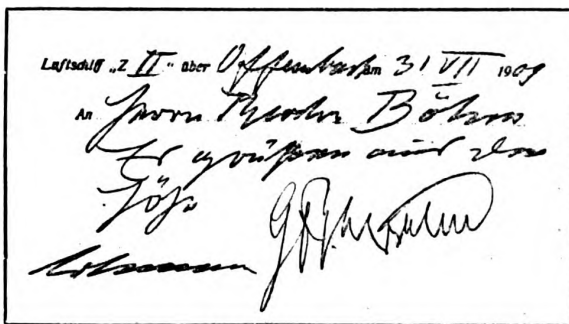 Luftschiff „Z II“ über Offenbach am 31 VII 1909
An Herrn Theodor Böhm
Es grüßen aus der
Höhe